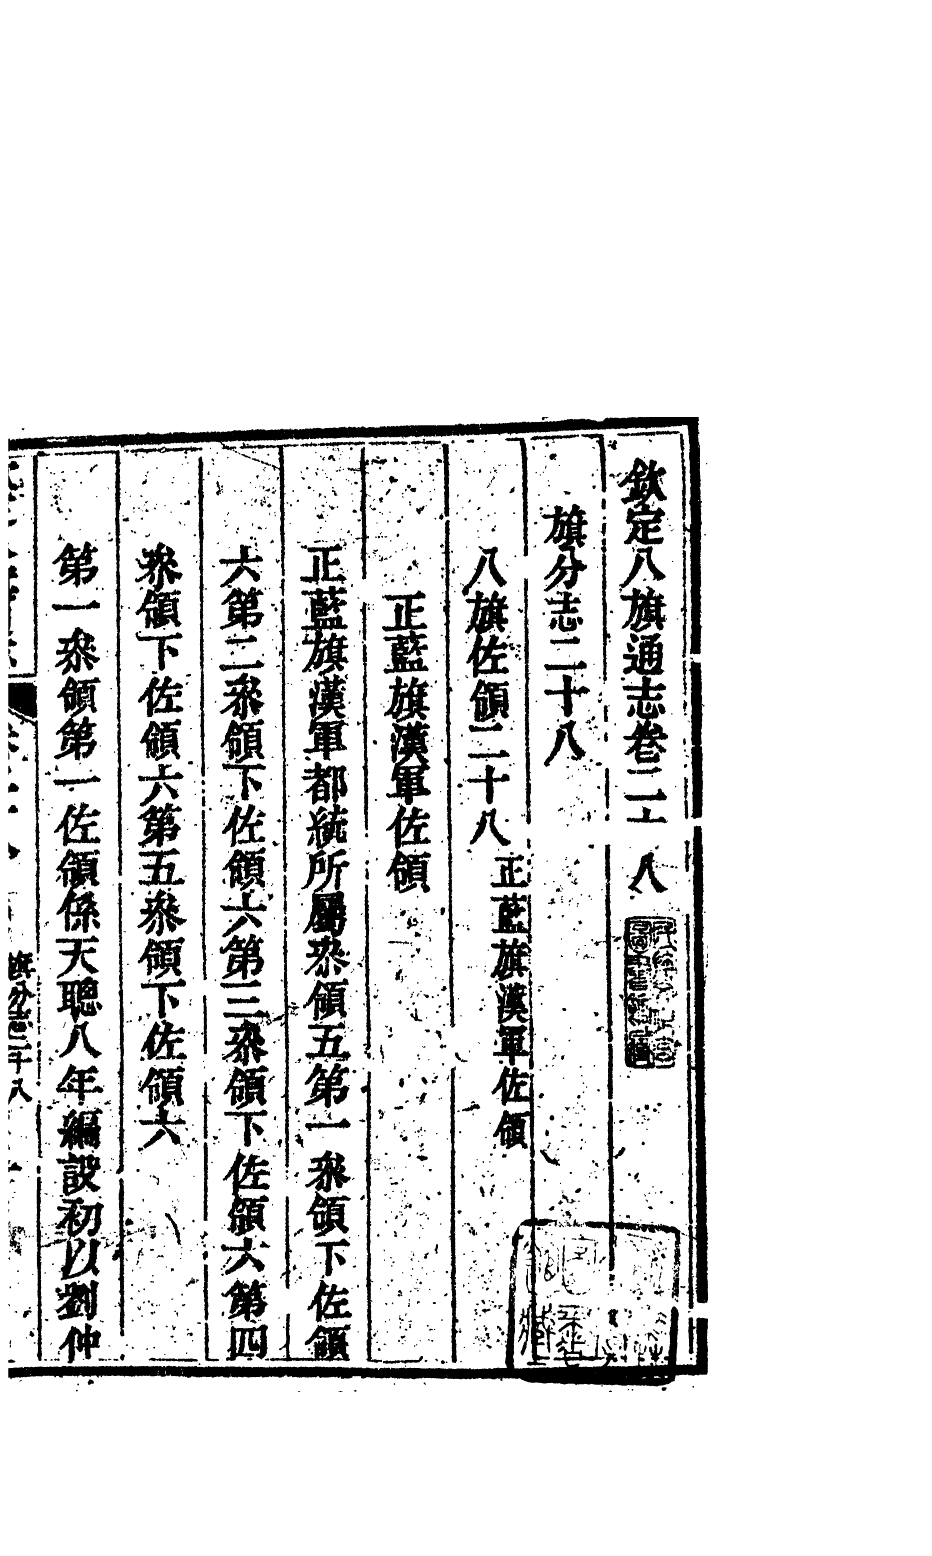 欽定八旗通志卷二十八
旗分志二十八
八旗佐領二十八 正藍旗漢軍佐領
正藍旗漢軍佐領
正藍旗漢軍都統所屬叅領五第一叅領下佐領
六第二叅領下佐領六第三叅領下佐領六第四
叅領下佐領六第五叅領下佐領六
第一叅領第一佐領係天聰八年編設初以劉仲
旗分志二十八